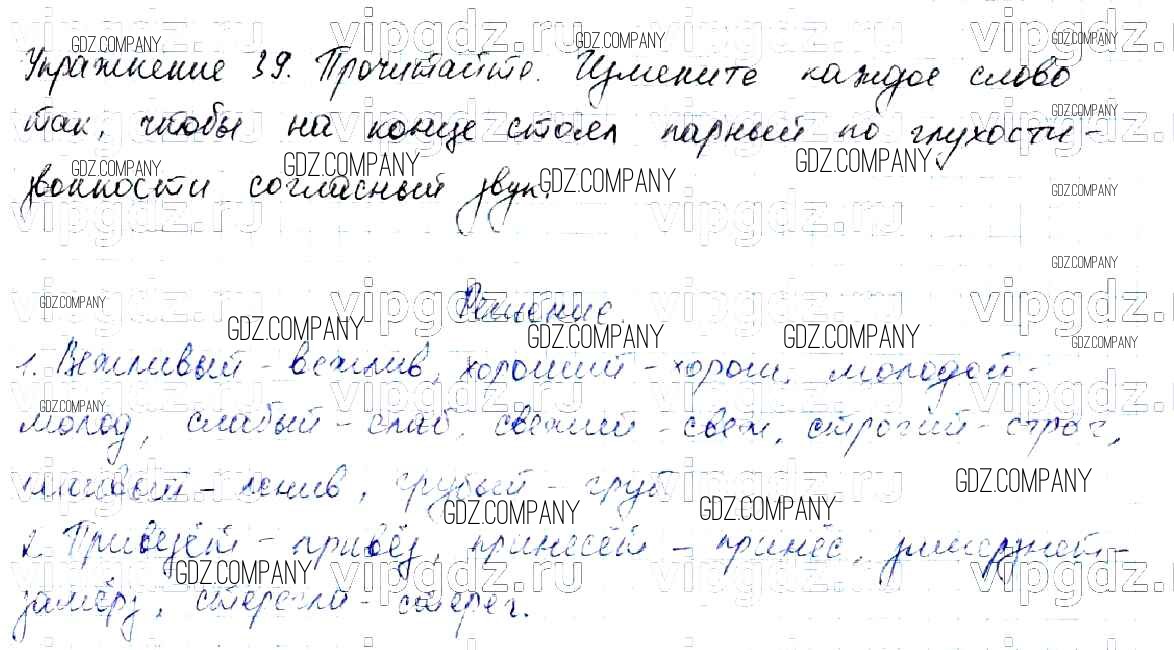 Упражнение 39. Прочитайте. Измените каждое слово
так, чтобы на конце стоял парный по глухости-
звонкости согласный звук.
Решение.
1. Вежливый - вежлив, хороший - хорош, молодой -
молод, слабый - слаб, свежий - свеж, строгий - строг,
ленивый - ленив, грубый - груб
2. Привезёт - привёз, принесёт - принёс, замёрзнет -
замёрз, стерегли - стерег.